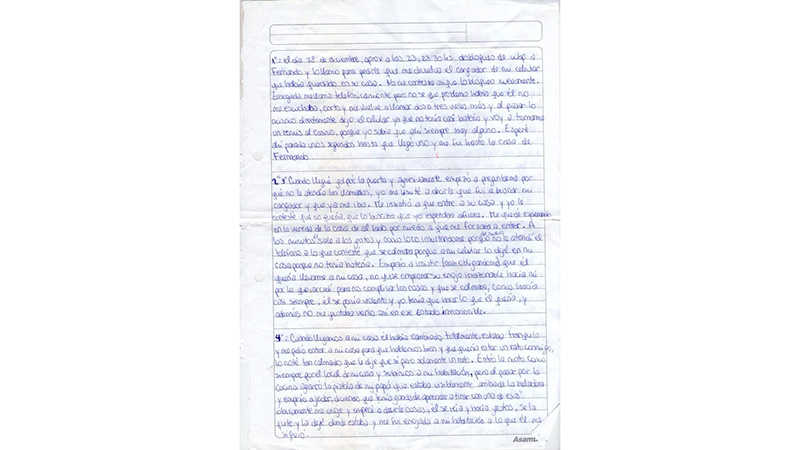 1º: el día 28 de diciembre, aprox a las 23, 23.30 hs desbloqueo de wsp a
Fernando y lo llamo para pedirle que me devuelva el cargador de mi celular
que había quedado en su casa. No me contesta así que lo bloqueo nuevamente.
Enseguida me llama telefónicamente pero no se que problema había que él no
me escuchaba, corta y me vuelve a llamar dos o tres veces más y al pasar lo
mismo directamente dejo el celular ya que no tenía casi batería y voy a tomarme
un remis al casino, porque yo sabía que ahí siempre hay alguno. Esperé
ahí parada unos segundos hasta que llego uno y me fui hasta la casa de
Fernando.
2º y 3º Cuando llegué golpeé la puerta y agresivamente empezó a preguntarme por
qué no le atendía los llamados, yo me limité a decirle que fui a buscar mi
cargador y que ya me iba. Me insistió a que entre a su casa y yo le
contesté que no quería, que lo buscara que yo esperaba afuera. Me quedé esperando
en la vereda de la casa de al lado por miedo a que me forzara a entrar. A
los minutos sale a los gritos y como loco insultándome porque no le atendí el
teléfono a lo que contesté que se calmara porque a mi celular lo dejé en mi
casa porque no tenía batería. Empezó a insistir (casi obligándome) que él
quería llevarme a mi casa, no quise empeorar su enojo irracionable hacia mí
por lo que accedí para no complicar las cosas y que se calmara, como hacía
casi siempre, él se ponía violento y yo tenía que hacer lo que él quería, y
además no me gustaba verlo así en ese estado irreconocible.
4º: Cuando llegamos a mi casa él había cambiado totalmente, estaba tranquilo
y me pedía entrar a mi casa para que hablemos bien y que quería estar un rato conmigo,
lo noté tan calmado que le dije que sí pero solamente un rato. Entró la moto como
siempre por el local de mi casa y subimos a mi habitación, pero al pasar por la
cocina agarró la pistola de mi papá que estaba visiblemente arriba de la heladera
y empezó a joder, diciendo que "tenía ganas de aprender a tirar con una de esas"
obviamente me enojé y empecé a decirle cosas, él se reía y hacía gestos, se la
quité y la dejé donde estaba y me fui enojada a mi habitación a lo que él me
siguió.
Asamu